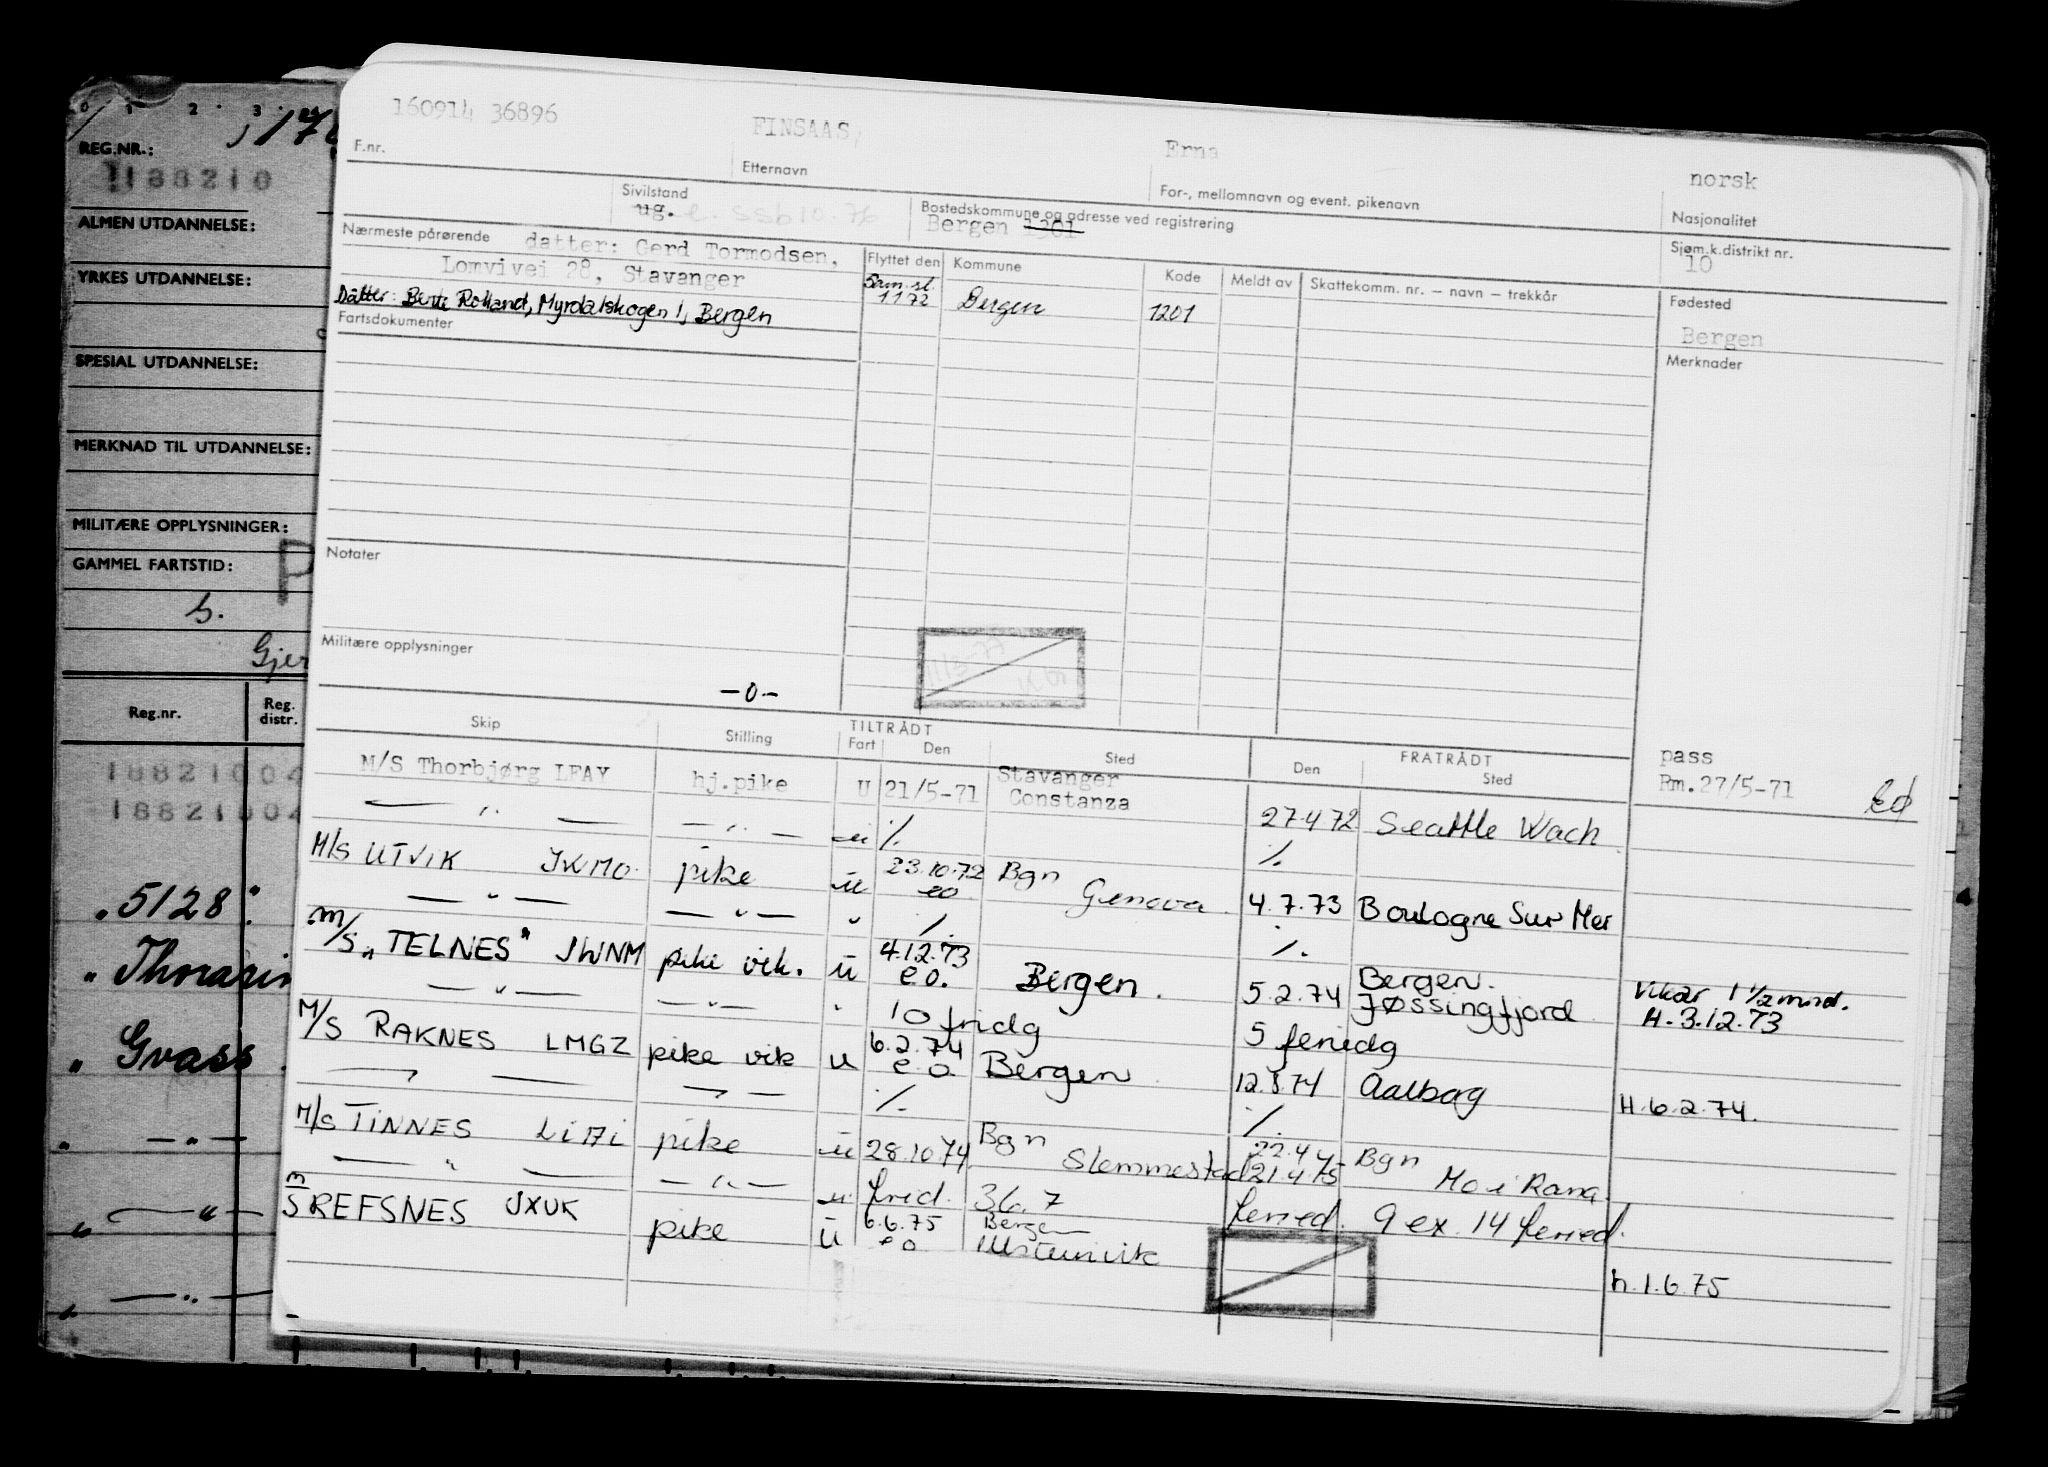 0 1 2 3
REG.NR.:
188210
ALMEN UTDANNELSE:
YRKES UTDANNELSE:
SPESIAL UTDANNELSE:
MERKNAD TIL UTDANNELSE:
MILITÆRE OPPLYSNINGER:
GAMMEL FARTSTID:
P
Gjer
Reg.nr. Reg. distr.
18821004
18821004
"5128"
" Thorasin
" Grass
160914 36896 FINSAAS, Erna norsk
F.nr. Etternavn For-, mellomnavn og event. pikenavn Nasjonalitet
Sivilstand Bostedskommune og adresse ved registrering Sjøm.k.distrikt nr.
ug. e. ssb 10.76 Bergen 1301 10
Nærmeste pårørende datter: Gerd Tormodsen, Flyttet den Kommune Kode Meldt av Skattekomm. nr. – navn – trekkår Fødested
Lomvivei 28, Stavanger
Datter: Rolland, Myrdalskogen 1, Bergen Sam.sl. 1.1.72 Bergen 1201 Bergen
Fartsdokumenter Merknader
Notater
Militære opplysninger
-0-
Skip Stilling TILTRÅDT Fart Den Sted FRATRÅDT Den Sted
M/S Thorbjørg LFAY hj.pike U 21/5-71 Stavanger Constanza pass Rm.27/5-71
— " — — " — u ·/. 27.4.72 Seattle Wach
M/S UTVIK JWMO pike u 23.10.72 eo Bgn Genova ·/.
— " — — " — " ·/. 4.7.73 Boulogne Sur Mer
M/S "TELNES" JWNM pike vik. u 4.12.73 e o. Bergen. ·/. Bergen. Vikar 1 1/2 mnd. H. 3.12.73
— " — — " — " 10 fridg 5.2.74 Jøssingfjord 5 feriedg
M/S RAKNES LMGZ pike vik u 6.2.74 e o Bergen H. 6.2.74.
— " — — " — ·/. 12.8.74 Aalborg
M/S TINNES pike u 28.10.74 Bgn Slemmestad ·/. Bgn
— " — — " — u frid. 36.7 21.4.75 Mo i Rana feried. 9 ex. 14 feried.
M/S REFSNES JXUK pike u 6.6.75 e o Bergen Ulsteinvik h. 1.6.75